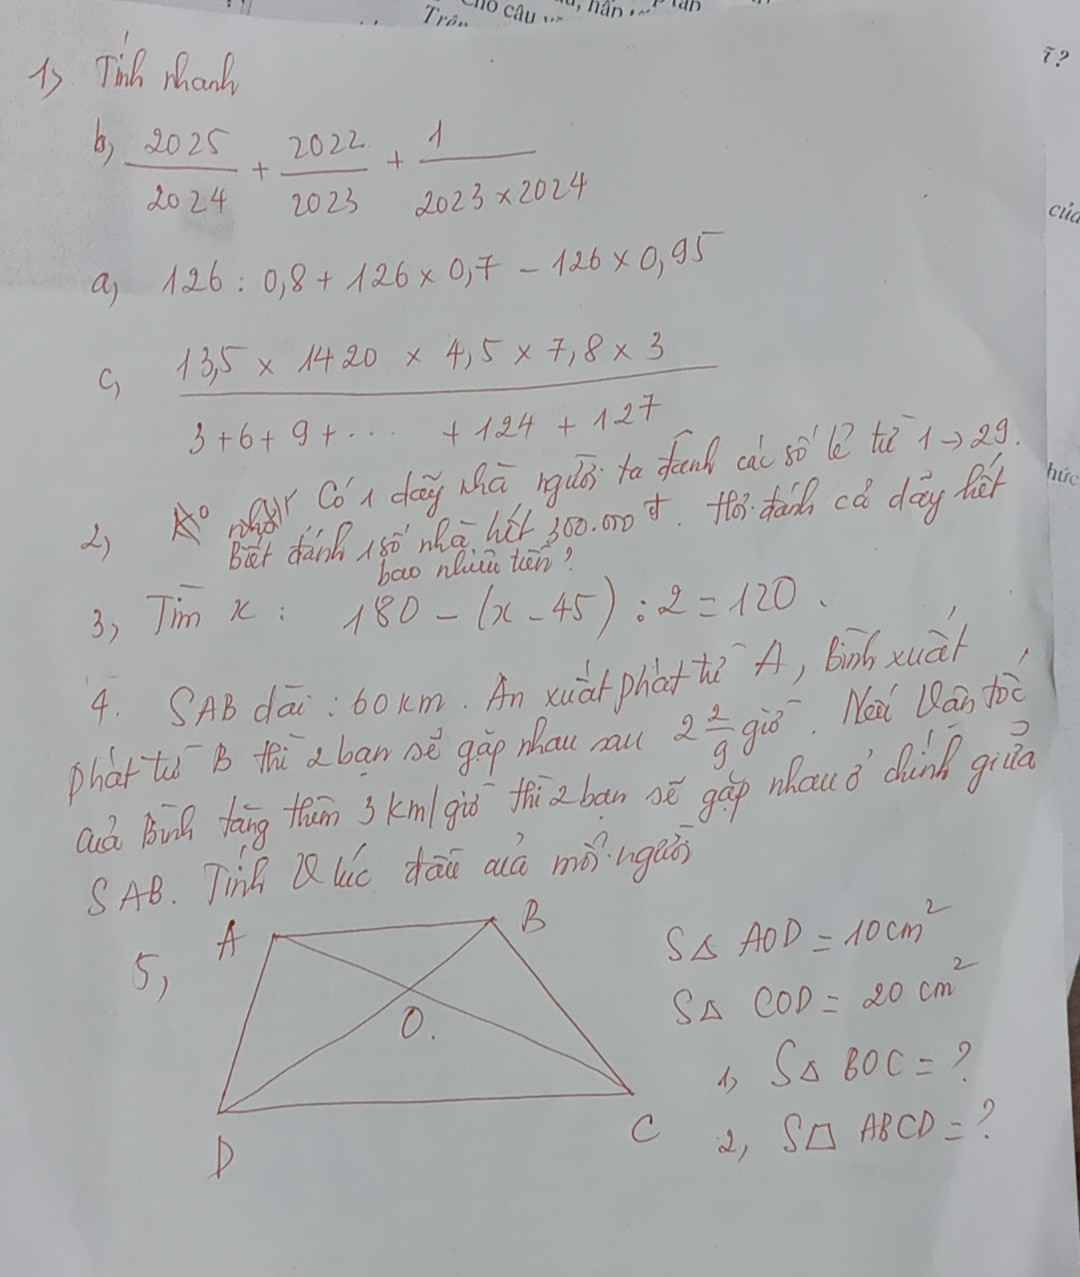 Cho câu
Trên
ĩ?
của
hức
1) Tính nhanh
b, 2025/2024 + 2022/2023 + 1/(2023 × 2024)
a, 126 : 0,8 + 126 × 0,7 - 126 × 0,95
c, 13,5 × 1420 × 4,5 × 7,8 × 3
3 + 6 + 9 + ... + 124 + 127
2, Có 1 dãy nhà người ta đánh các số lẻ từ 1 → 29.
Biết đánh 1 số nhà hết 300.000đ. Hỏi đánh cả dãy hết
bao nhiêu tiền?
3, Tìm x : 180 - (x - 45) : 2 = 120.
4. SAB dài : 60 km. An xuất phát từ A, Bình xuất
phát từ B thì 2 bạn sẽ gặp nhau sau 2 2/9 giờ. Nếu Vân tốc
của Bình tăng thêm 3 km/giờ thì 2 bạn sẽ gặp nhau ở chính giữa
SAB. Tính V lúc đầu của mỗi người
5,
A
B
O.
D
C
S△ AOD = 10 cm²
S△ COD = 20 cm²
1, S△ BOC = ?
2, S□ ABCD = ?